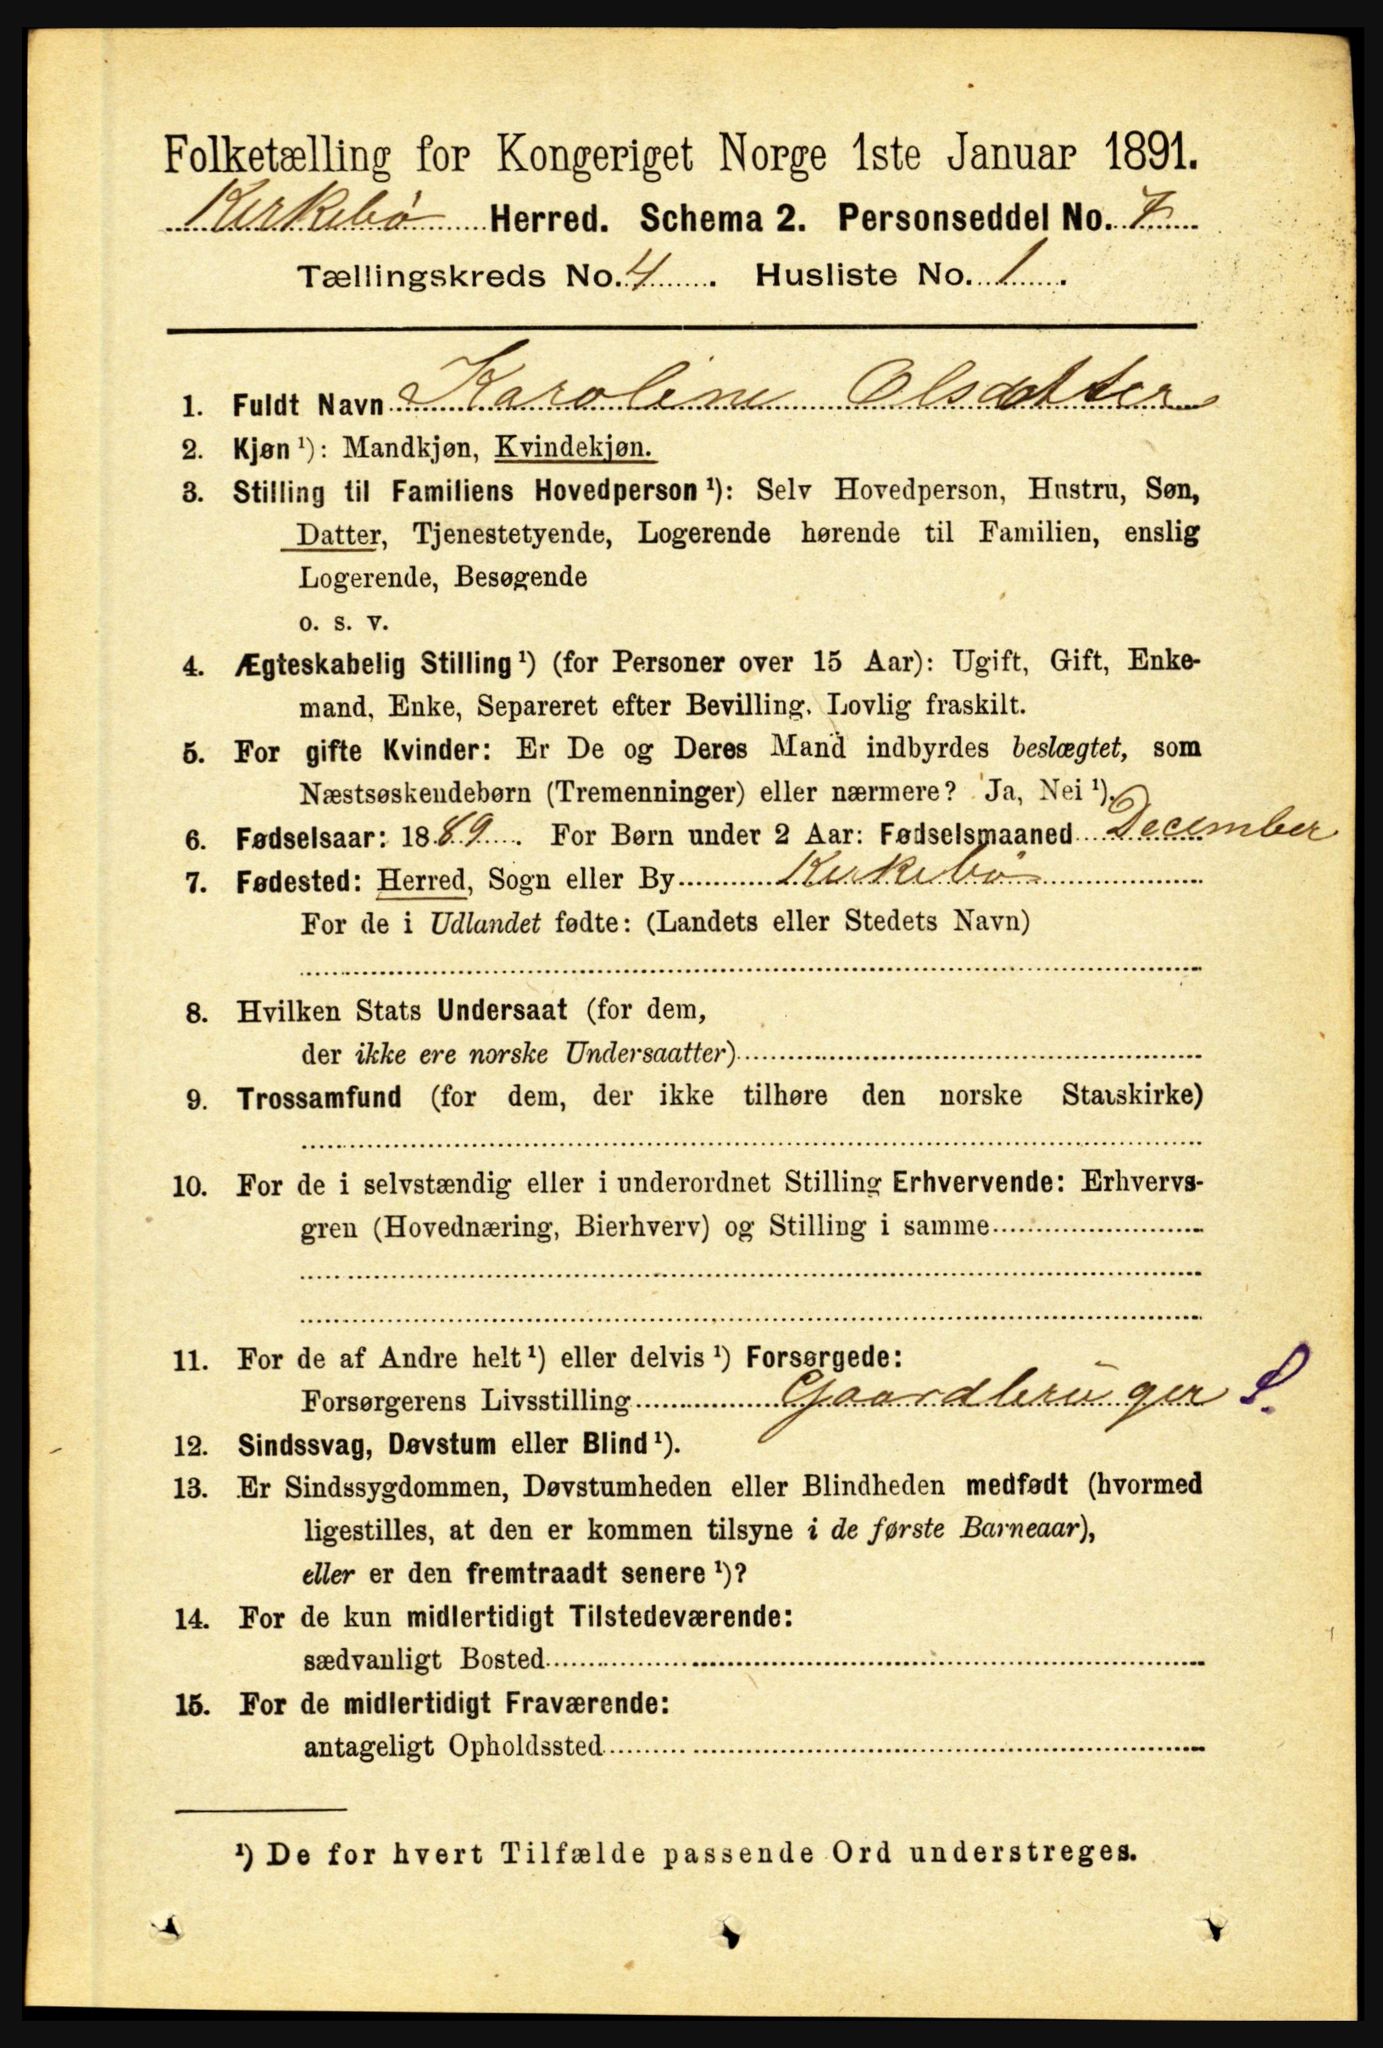 Folketælling for Kongeriget Norge 1ste Januar 1891.
Kirkebø Herred. Schema 2. Personseddel No. 7
Tællingskreds No. 4. Husliste No. 1.
1. Fuldt Navn Karoline Olsdatter
2. Kjøn ¹): Mandkjøn, Kvindekjøn.
3. Stilling til Familiens Hovedperson ¹): Selv Hovedperson, Hustru, Søn,
Datter, Tjenestetyende, Logerende hørende til Familien, enslig
Logerende, Besøgende
o. s. v.
4. Ægteskabelig Stilling ¹) (for Personer over 15 Aar): Ugift, Gift, Enke-
mand, Enke, Separeret efter Bevilling. Lovlig fraskilt.
5. For gifte Kvinder: Er De og Deres Mand indbyrdes beslægtet, som
Næstsøskendebørn (Tremenninger) eller nærmere? Ja, Nei ¹).
6. Fødselsaar: 1889. For Børn under 2 Aar: Fødselsmaaned December
7. Fødested: Herred, Sogn eller By Kirkebø
For de i Udlandet fødte: (Landets eller Stedets Navn)
8. Hvilken Stats Undersaat (for dem,
der ikke ere norske Undersaatter)
9. Trossamfund (for dem, der ikke tilhøre den norske Statskirke)
10. For de i selvstændig eller i underordnet Stilling Erhvervende: Erhvervs-
gren (Hovednæring, Bierhverv) og Stilling i samme
11. For de af Andre helt ¹) eller delvis ¹) Forsørgede:
Forsørgerens Livsstilling Gaardbruger S.
12. Sindssvag, Døvstum eller Blind ¹).
13. Er Sindssygdommen, Døvstumheden eller Blindheden medfødt (hvormed
ligestilles, at den er kommen tilsyne i de første Barneaar),
eller er den fremtraadt senere ¹)?
14. For de kun midlertidigt Tilstedeværende:
sædvanligt Bosted
15. For de midlertidigt Fraværende:
antageligt Opholdssted
¹) De for hvert Tilfælde passende Ord understreges.